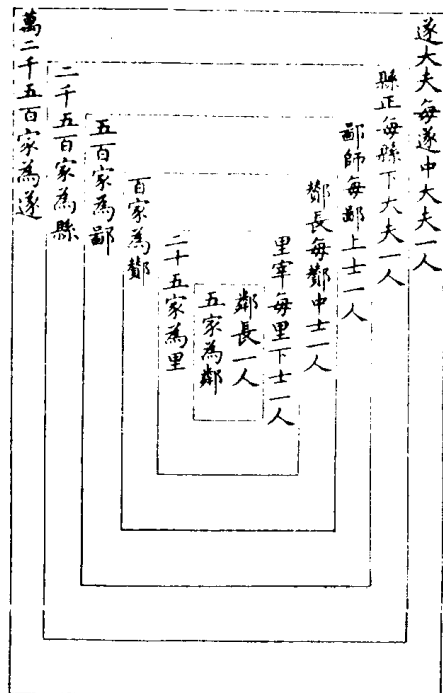 遂大夫每遂中大夫一人
縣正每縣下大夫一人
鄙師每鄙上士一人
酇長每酇中士一人
里宰每里下士一人
鄰長一人
五家為鄰
二十五家為里
百家為酇
五百家為鄙
二千五百家為縣
萬二千五百家為遂